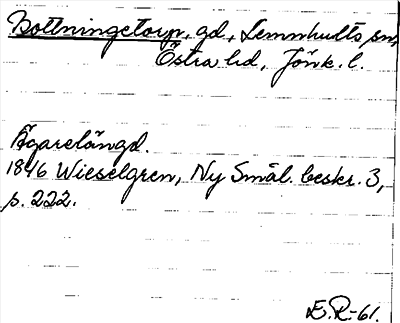 Bottningetorp, gd, Lemnhults sn,
Östra hd, Jönk. l.
Ägarelängd.
1846 Wieselgren, Ny Smål. beskr. 3,
s. 222.
E.R.-61.